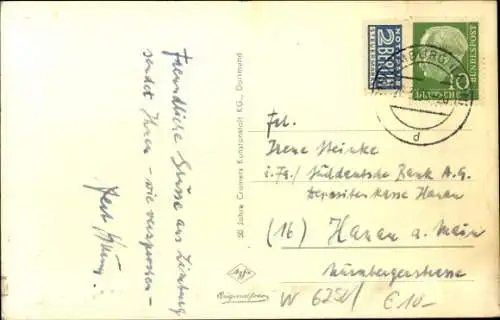 Freundliche Grüsse aus Limburg
sendet Ihnen - wie versprochen -
50 Jahre Cramers Kunstanstalt KG., Dortmund
Agfa
Originalfoto
NOTOPFER
2 BERLIN
STEUERMARKE
10
DEUTSCHE
BUNDESPOST
d
Frl.
Irene Steinke
i.Fa./ Süddeutsche Bank A.G.
Depositenkasse Hanau
(16) Hanau a. Main
Nürnbergerstrasse
€10-